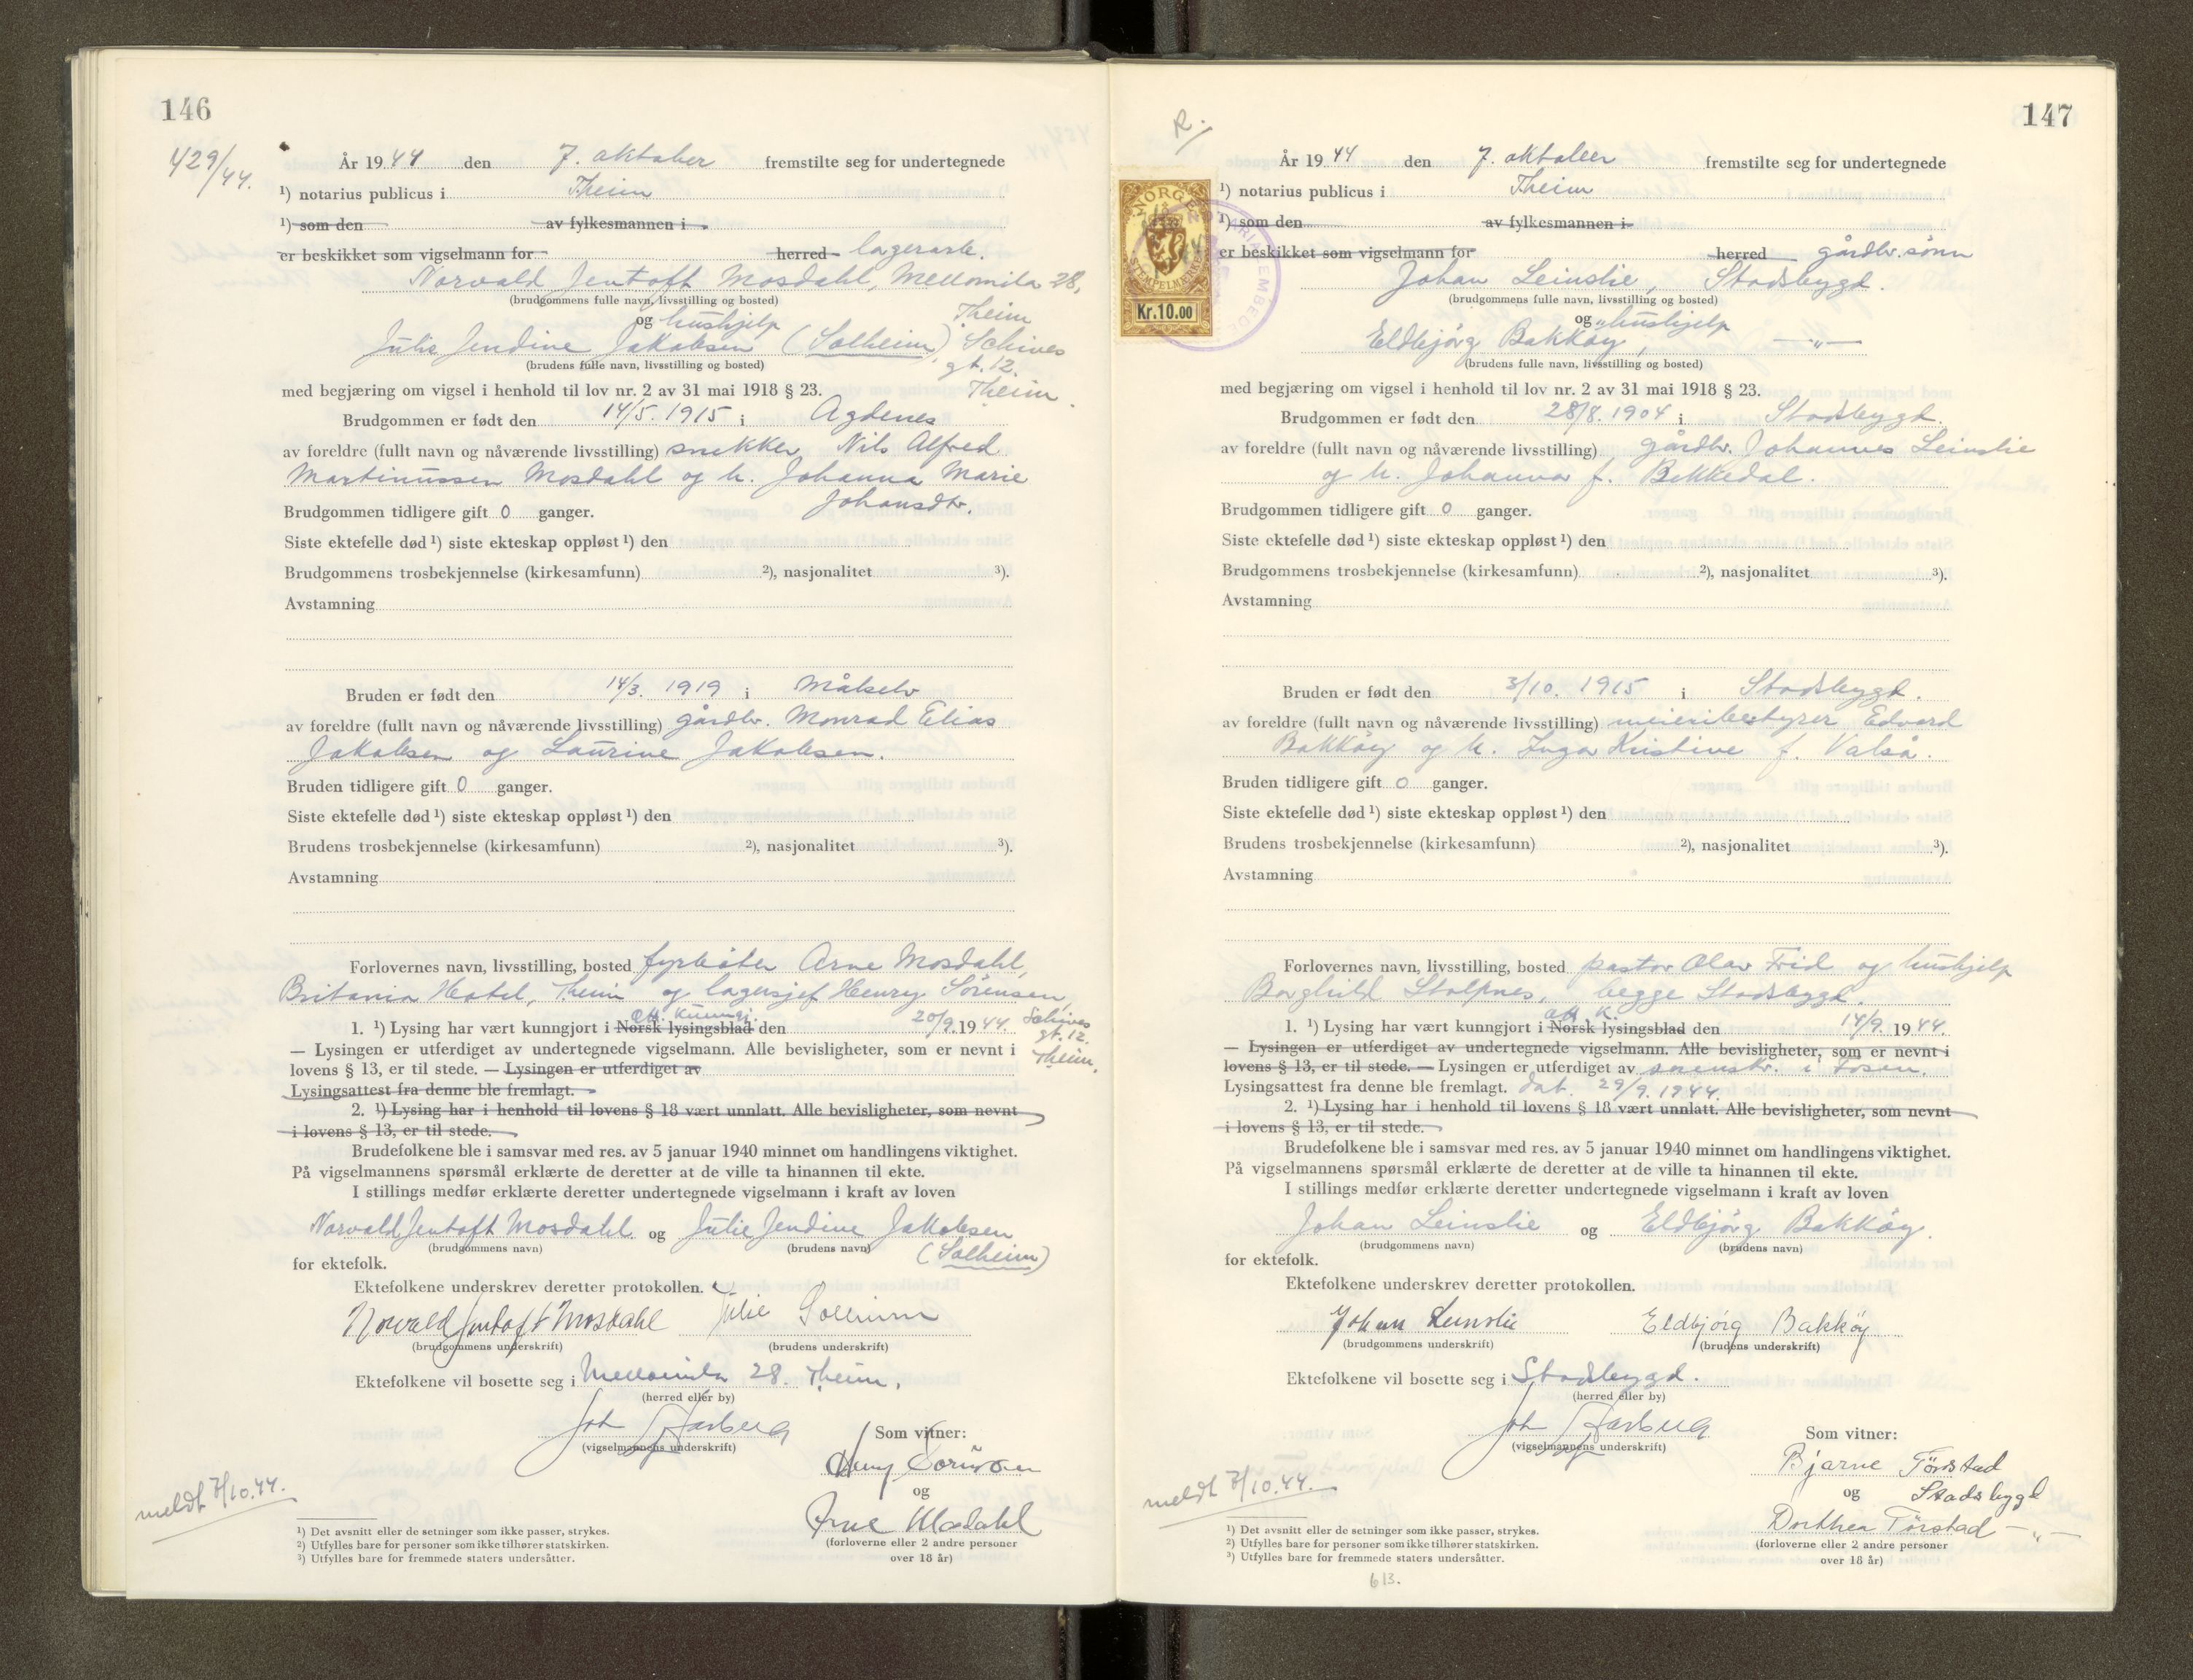 146
429/44.
År 1944 den 7. oktober fremstilte seg for undertegnede
¹) notarius publicus i Theim
¹) som den av fylkesmannen i
er beskikket som vigselmann for herred lagerarb.
Norvald Jentoft Mosdahl, Mellomila 28,
(brudgommens fulle navn, livsstilling og bosted) Theim
og hushjelp
Julie Jendine Jakobsen (Solheim), Schives
gt. 12.
(brudens fulle navn, livsstilling og bosted)
Theim.
med begjæring om vigsel i henhold til lov nr. 2 av 31 mai 1918 § 23.
Brudgommen er født den 14/5. 1915 i Agdenes
av foreldre (fullt navn og nåværende livsstilling) snekker Nils Alfred
Martinussen Mosdahl og h. Johanna Marie
Johansdtr.
Brudgommen tidligere gift 0 ganger.
Siste ektefelle død ¹) siste ekteskap oppløst ¹) den
Brudgommens trosbekjennelse (kirkesamfunn) ²), nasjonalitet ³).
Avstamning
Bruden er født den 14/3. 1919 i Målselv
av foreldre (fullt navn og nåværende livsstilling) gårdbr. Monrad Elias
Jakobsen og Laurine Jakobsen.
Bruden tidligere gift 0 ganger.
Siste ektefelle død ¹) siste ekteskap oppløst ¹) den
Brudens trosbekjennelse (kirkesamfunn) ²), nasjonalitet ³).
Avstamning
Forlovernes navn, livsstilling, bosted fyrbøter Arne Mosdahl,
Britania Hotel, Theim og lagersjef Henry Sörensen,
Schives
gt. 12.
Theim.
off. kunngj.
1. ¹) Lysing har vært kunngjort i Norsk lysingsblad den 20/9. 1944.
— Lysingen er utferdiget av undertegnede vigselmann. Alle bevisligheter, som er nevnt i
lovens § 13, er til stede. — Lysingen er utferdiget av
Lysingsattest fra denne ble fremlagt.
2. ¹) Lysing har i henhold til lovens § 18 vært unnlatt. Alle bevisligheter, som nevnt
i lovens § 13, er til stede.
Brudefolkene ble i samsvar med res. av 5 januar 1940 minnet om handlingens viktighet.
På vigselmannens spørsmål erklærte de deretter at de ville ta hinannen til ekte.
I stillings medfør erklærte deretter undertegnede vigselmann i kraft av loven
Norvald Jentoft Mosdahl og Julie Jendine Jakobsen
(brudgommens navn) (brudens navn) (Solheim)
for ektefolk.
Ektefolkene underskrev deretter protokollen.
Norvald Jentoft Mosdahl Julie Solheim
(brudgommens underskrift) (brudens underskrift)
Ektefolkene vil bosette seg i Mellomila 28. Theim.
(herred eller by)
(vigselmannens underskrift)
Som vitner:
Henry Sörensen
og
Arne Mosdahl
(forloverne eller 2 andre personer
over 18 år)
meldt 7/10.44.
¹) Det avsnitt eller de setninger som ikke passer, strykes.
²) Utfylles bare for personer som ikke tilhører statskirken.
³) Utfylles bare for fremmede staters undersåtter.
147
R.
NORGE
STEMPELMERKE
Kr.10.00
År 1944 den 7. oktober fremstilte seg for undertegnede
¹) notarius publicus i Theim
¹) som den av fylkesmannen i
er beskikket som vigselmann for herred gårdbr. sönn
Johan Leinslie, Stadsbygd.
(brudgommens fulle navn, livsstilling og bosted)
og hushjelp
Eldbjörg Bakköy, —"—
(brudens fulle navn, livsstilling og bosted)
med begjæring om vigsel i henhold til lov nr. 2 av 31 mai 1918 § 23.
Brudgommen er født den 28/8. 1904 i Stadsbygd.
av foreldre (fullt navn og nåværende livsstilling) gårdbr. Johannes Leinslie
og h. Johanna f. Bekkedal.
Brudgommen tidligere gift 0 ganger.
Siste ektefelle død ¹) siste ekteskap oppløst ¹) den
Brudgommens trosbekjennelse (kirkesamfunn) ²), nasjonalitet ³).
Avstamning
Bruden er født den 3/10. 1915 i Stadsbygd.
av foreldre (fullt navn og nåværende livsstilling) meieribestyrer Edvard
Bakköy og h. Inga Kristine f. Valså.
Bruden tidligere gift 0 ganger.
Siste ektefelle død ¹) siste ekteskap oppløst ¹) den
Brudens trosbekjennelse (kirkesamfunn) ²), nasjonalitet ³).
Avstamning
Forlovernes navn, livsstilling, bosted pastor Olav Frid og hushjelp
Borghild Stolpnes, begge Stadsbygd.
off. k.
1. ¹) Lysing har vært kunngjort i Norsk lysingsblad den 14/9. 1944.
— Lysingen er utferdiget av undertegnede vigselmann. Alle bevisligheter, som er nevnt i
lovens § 13, er til stede. — Lysingen er utferdiget av sorenskr. i Fosen.
Lysingsattest fra denne ble fremlagt. dat. 29/9. 1944.
2. ¹) Lysing har i henhold til lovens § 18 vært unnlatt. Alle bevisligheter, som nevnt
i lovens § 13, er til stede.
Brudefolkene ble i samsvar med res. av 5 januar 1940 minnet om handlingens viktighet.
På vigselmannens spørsmål erklærte de deretter at de ville ta hinannen til ekte.
I stillings medfør erklærte deretter undertegnede vigselmann i kraft av loven
Johan Leinslie og Eldbjörg Bakköy.
(brudgommens navn) (brudens navn)
for ektefolk.
Ektefolkene underskrev deretter protokollen.
Johan Leinslie Eldbjörg Bakköy
(brudgommens underskrift) (brudens underskrift)
Ektefolkene vil bosette seg i Stadsbygd.
(herred eller by)
(vigselmannens underskrift)
Som vitner:
Bjarne Törstad
og Stadsbygd
Dorthea Törstad —"—
(forloverne eller 2 andre personer
over 18 år)
meldt 7/10.44.
¹) Det avsnitt eller de setninger som ikke passer, strykes.
²) Utfylles bare for personer som ikke tilhører statskirken.
³) Utfylles bare for fremmede staters undersåtter.
613.